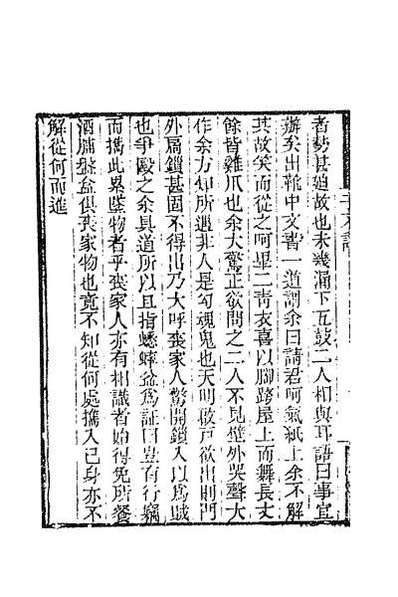 者勢甚廹故也未幾漏下五鼓二人相與耳語曰事宜
辦矣出靴中文書一道謂余曰請君呵氣紙上余不解
其故笑而從之呵畢二靑衣喜以腳踏屋上而舞長丈
餘皆雞爪也余大驚正欲問之二人不見壁外哭聲大
作余方知所遇非人是勾魂鬼也天明啟戸欲出則門
外扃鎖甚固不得出乃大呼喪家人驚開鎖入以爲賊
也爭毆之余具道所以且指蟋蟀盆爲証曰豈有行竊
而攜此累墜物者乎喪家人亦有相識者始得免所餐
酒脯盤盆俱喪家物也竟不知從何處攜入已身亦不
解從何而進